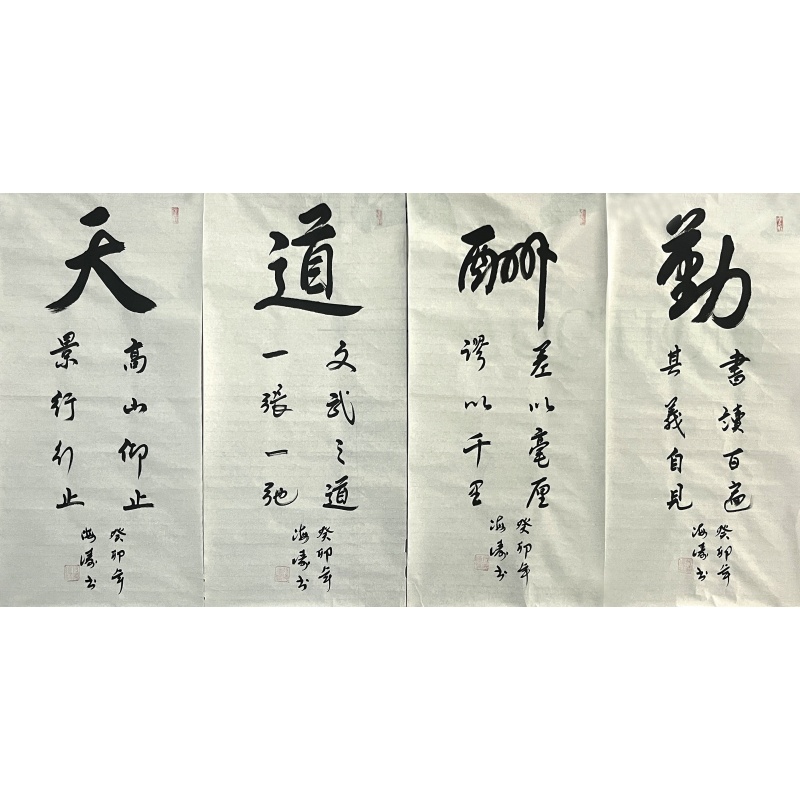 天
高山仰止
景行行止
癸卯年
海涛书
道
文武之道
一張一弛
癸卯年
海涛书
酬
差以毫厘
謬以千里
癸卯年
海涛书
勤
書讀百遍
其義自見
癸卯年
海涛书